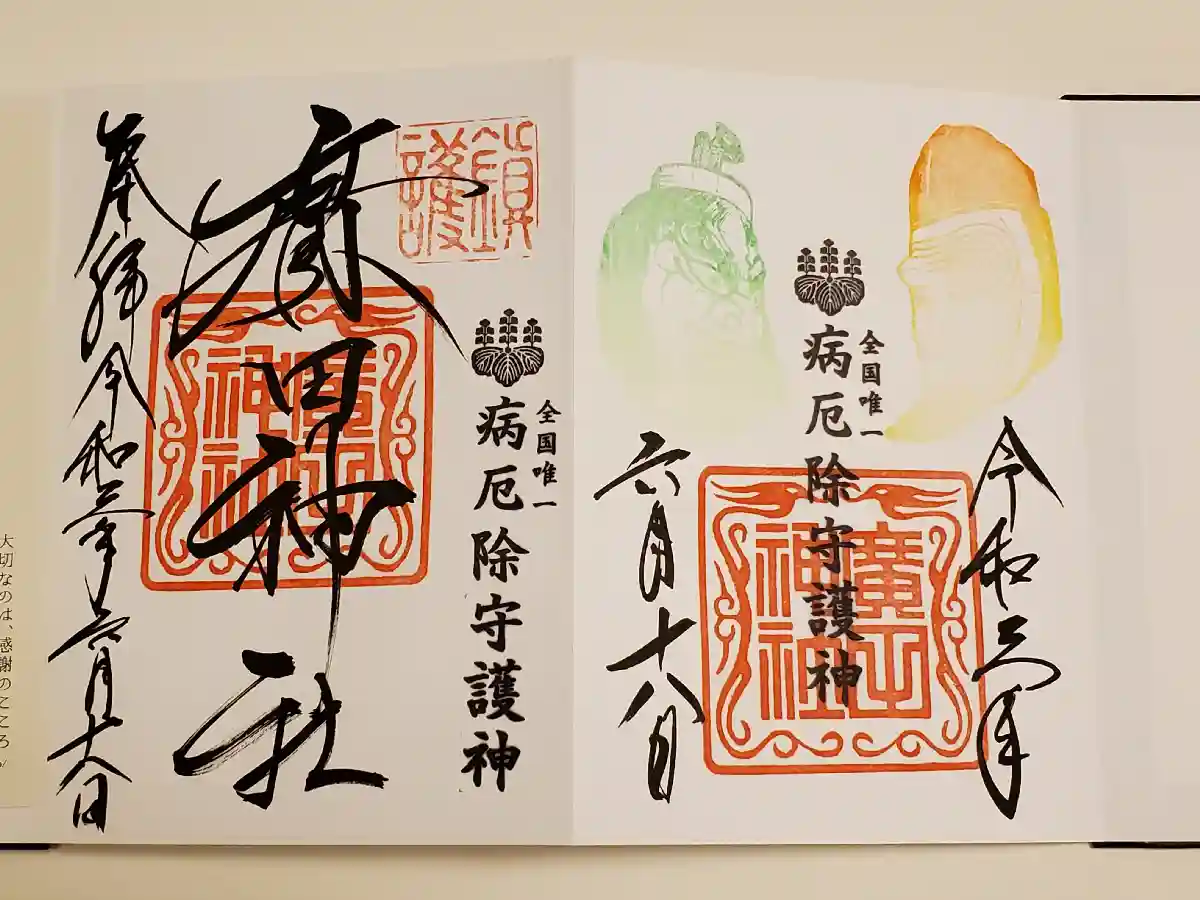 令和三年
全国唯一
病厄除守護神
廣田神社
六月十八日
鎮護
全国唯一
病厄除守護神
廣田神社
廣田神社
奉拝 令和三年六月十八日
大切なのは、感謝のこころ